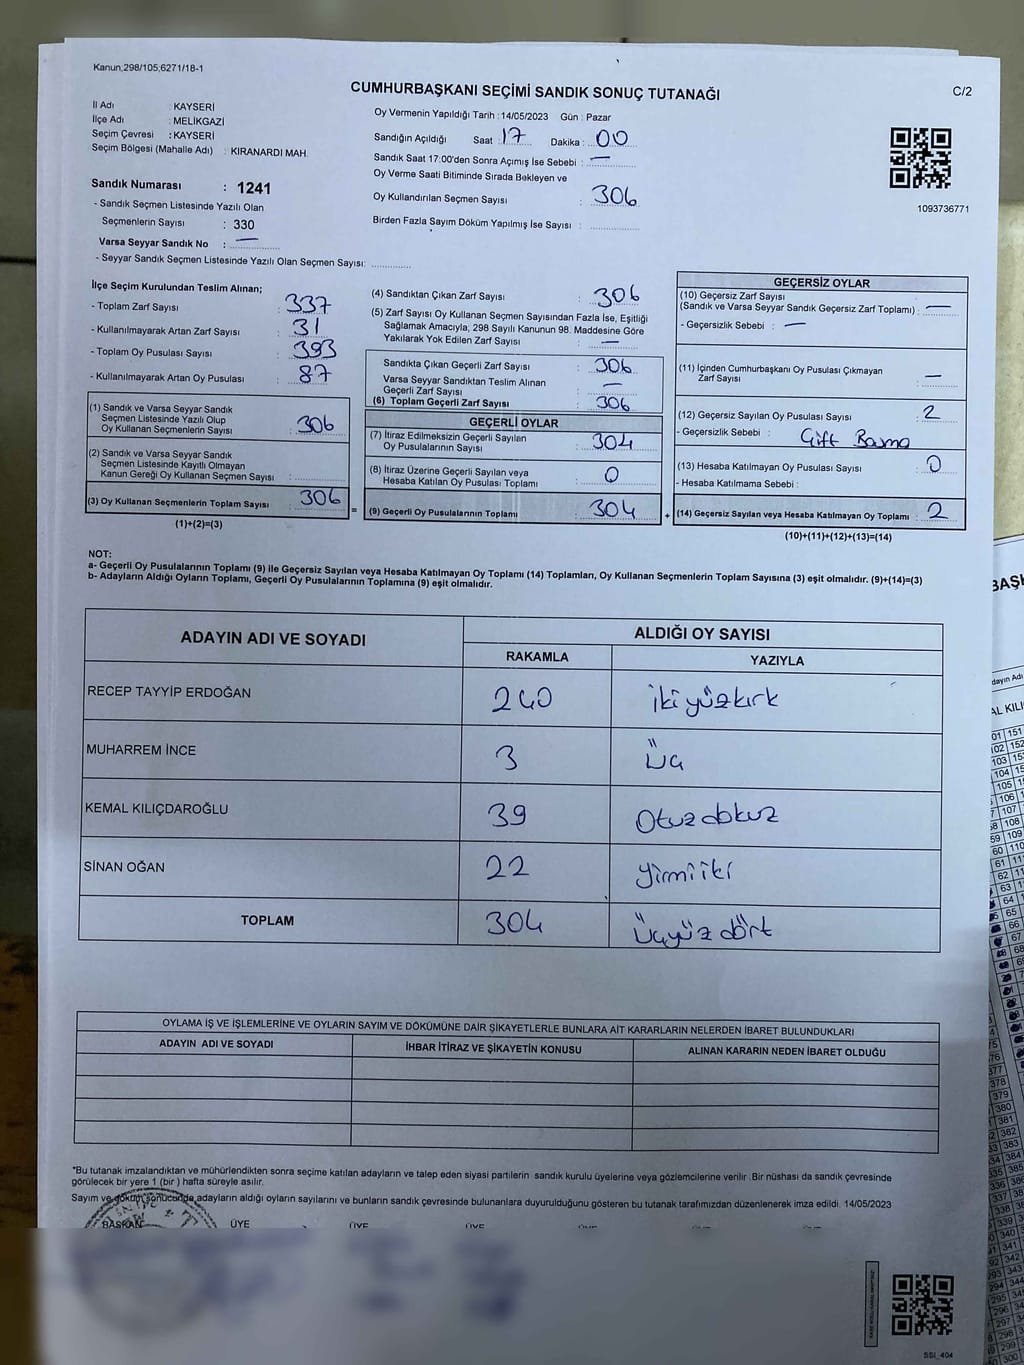 Kanun,298/105,6271/18-1
CUMHURBAŞKANI SEÇİMİ SANDIK SONUÇ TUTANAĞI
C/2
İl Adı : KAYSERİ
İlçe Adı : MELİKGAZİ
Seçim Çevresi : KAYSERİ
Seçim Bölgesi (Mahalle Adı) : KIRANARDI MAH.
Sandık Numarası : 1241
- Sandık Seçmen Listesinde Yazılı Olan
Seçmenlerin Sayısı : 330
Varsa Seyyar Sandık No : —
- Seyyar Sandık Seçmen Listesinde Yazılı Olan Seçmen Sayısı: ............
Oy Vermenin Yapıldığı Tarih : 14/05/2023 Gün : Pazar
Sandığın Açıldığı Saat : 17 Dakika : 00
Sandık Saat 17:00'den Sonra Açımış İse Sebebi : —
Oy Verme Saati Bitiminde Sırada Bekleyen ve
Oy Kullandırılan Seçmen Sayısı : 306
Birden Fazla Sayım Döküm Yapılmış İse Sayısı : ............
1093736771
İlçe Seçim Kurulundan Teslim Alınan;
- Toplam Zarf Sayısı : 337
- Kullanılmayarak Artan Zarf Sayısı : 31
- Toplam Oy Pusulası Sayısı : 393
- Kullanılmayarak Artan Oy Pusulası : 87
(1) Sandık ve Varsa Seyyar Sandık
Seçmen Listesinde Yazılı Olup
Oy Kullanan Seçmenlerin Sayısı : 306
(2) Sandık ve Varsa Seyyar Sandık
Seçmen Listesinde Kayıtlı Olmayan
Kanun Gereği Oy Kullanan Seçmen Sayısı : ............
(3) Oy Kullanan Seçmenlerin Toplam Sayısı : 306
(1)+(2)=(3)
(4) Sandıktan Çıkan Zarf Sayısı : 306
(5) Zarf Sayısı Oy Kullanan Seçmen Sayısından Fazla İse, Eşitliği
Sağlamak Amacıyla; 298 Sayılı Kanunun 98. Maddesine Göre
Yakılarak Yok Edilen Zarf Sayısı : —
Sandıkta Çıkan Geçerli Zarf Sayısı : 306
Varsa Seyyar Sandıktan Teslim Alınan
Geçerli Zarf Sayısı : —
(6) Toplam Geçerli Zarf Sayısı : 306
GEÇERLİ OYLAR
(7) İtiraz Edilmeksizin Geçerli Sayılan
Oy Pusulalarının Sayısı : 304
(8) İtiraz Üzerine Geçerli Sayılan veya
Hesaba Katılan Oy Pusulası Toplamı : 0
= (9) Geçerli Oy Pusulalarının Toplamı : 304 +
GEÇERSİZ OYLAR
(10) Geçersiz Zarf Sayısı
(Sandık ve Varsa Seyyar Sandık Geçersiz Zarf Toplamı) : —
- Geçersizlik Sebebi : —
(11) İçinden Cumhurbaşkanı Oy Pusulası Çıkmayan
Zarf Sayısı : —
(12) Geçersiz Sayılan Oy Pusulası Sayısı : 2
- Geçersizlik Sebebi : Çift Basma
(13) Hesaba Katılmayan Oy Pusulası Sayısı : 0
- Hesaba Katılmama Sebebi :
(14) Geçersiz Sayılan veya Hesaba Katılmayan Oy Toplamı : 2
(10)+(11)+(12)+(13)=(14)
NOT:
a- Geçerli Oy Pusulalarının Toplamı (9) ile Geçersiz Sayılan veya Hesaba Katılmayan Oy Toplamı (14) Toplamları, Oy Kullanan Seçmenlerin Toplam Sayısına (3) eşit olmalıdır. (9)+(14)=(3)
b- Adayların Aldığı Oyların Toplamı, Geçerli Oy Pusulalarının Toplamına (9) eşit olmalıdır.
ADAYIN ADI VE SOYADI
ALDIĞI OY SAYISI
RAKAMLA YAZIYLA
RECEP TAYYİP ERDOĞAN 240 ikiyüzkırk
MUHARREM İNCE 3 Üç
KEMAL KILIÇDAROĞLU 39 Otuzdokuz
SİNAN OĞAN 22 Yirmiiki
TOPLAM 304 Üçyüzdört
OYLAMA İŞ VE İŞLEMLERİNE VE OYLARIN SAYIM VE DÖKÜMÜNE DAİR ŞİKAYETLERLE BUNLARA AİT KARARLARIN NELERDEN İBARET BULUNDUKLARI
ADAYIN ADI VE SOYADI İHBAR İTİRAZ VE ŞİKAYETİN KONUSU ALINAN KARARIN NEDEN İBARET OLDUĞU
*Bu tutanak imzalandıktan ve mühürlendikten sonra seçime katılan adayların ve talep eden siyasi partilerin sandık kurulu üyelerine veya gözlemcilerine verilir. Bir nüshası da sandık çevresinde
görülecek bir yere 1 (bir) hafta süreyle asılır.
Sayım ve döküm sonucunda adayların aldığı oyların sayılarını ve bunların sandık çevresinde bulunanlara duyurulduğunu gösteren bu tutanak tarafımızdan düzenlenerek imza edildi. 14/05/2023
BAŞKAN ÜYE ÜYE ÜYE
SSI_404